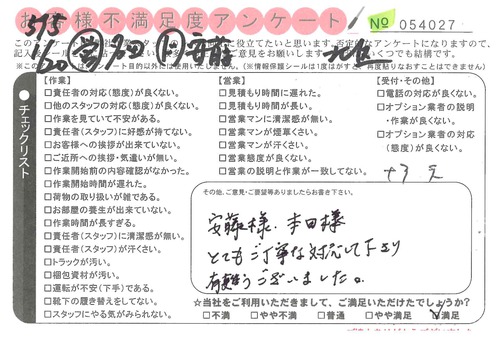 お客様不満足度アンケート
No 054027
このアンケートは
に役立てたいと思います。否定的なアンケートになりますので、
ご意見をお願いします。
いくつでも結構です。
※このアンケートは
目的以外には使用いたしません。(※情報保護シールは1度はがすと、再度貼りなおすことはできません)
チェックリスト
【作業】
□責任者の対応(態度)が良くない。
□他のスタッフの対応(態度)が良くない。
□作業を見ていて不安がある。
□責任者(スタッフ)に好感が持てない。
□お客様への挨拶が出来ていない。
□ご近所への挨拶・気遣いが無い。
□作業開始前の内容確認がなかった。
□作業開始時間が遅れた。
□荷物の取り扱いが雑である。
□お部屋の養生が出来ていない。
□作業時間が長すぎる。
□責任者(スタッフ)に清潔感が無い。
□責任者(スタッフ)が汗くさい。
□トラックが汚い。
□梱包資材が汚い。
□運転が不安(下手)である。
□靴下の履き替えをしてない。
□スタッフにやる気がみられない。
【営業】
□見積もり時間に遅れた。
□見積もり時間が長い。
□営業マンに清潔感が無い。
□営業マンが煙草くさい。
□営業マンが汗くさい。
□営業態度が良くない。
□営業の説明と作業が一致してない。
【受付・その他】
□電話の対応が良くない。
□オプション業者の説明
・作業が良くない。
□オプション業者の対応
(態度)が良くない。
その他、ご意見・ご要望等ありましたらお書き下さい。
安藤様、本田様
とてもご丁寧な対応して下さり
有難うございました。
☆当社をご利用いただきまして、ご満足いただけたでしょうか?
□不満 □やや不満 □普通 □やや満足 ☑満足